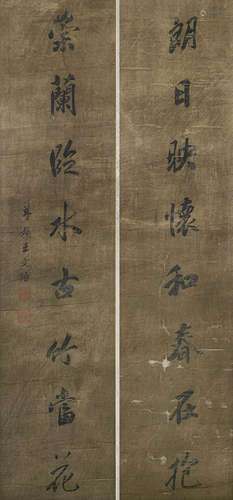 朗日映懷和春在抱
崇蘭臨水古竹當花
王文治